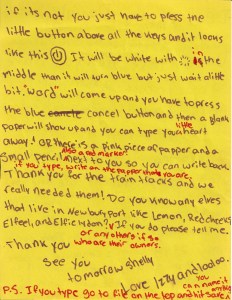 if its not you just have to press the
little button above all the keys and it looks
like this It will be white with in
the middle than it will turn blue but just wait alitle
bit. "Word" will come up and you have to press
the blue cancel button and then a blank
paper will show up and you can type your little heart
away.' OR there is a pink piece of papper and a
Small pencil also a red marker next to you so you can write back
if you type, write on the papper that you are.
Thank you for the train tracks and we
really needed them! Do you know any elkes
that live in Newburyport like Lemon, Red cheeks,
Elfeel, and Elfic Hdon? If you do please tell me.
or any others if so who are their owners.
Thank you
see you
tomorrow shelly
Love Izzy and
P.S. If you type go to file on the top and hit save
you can name it